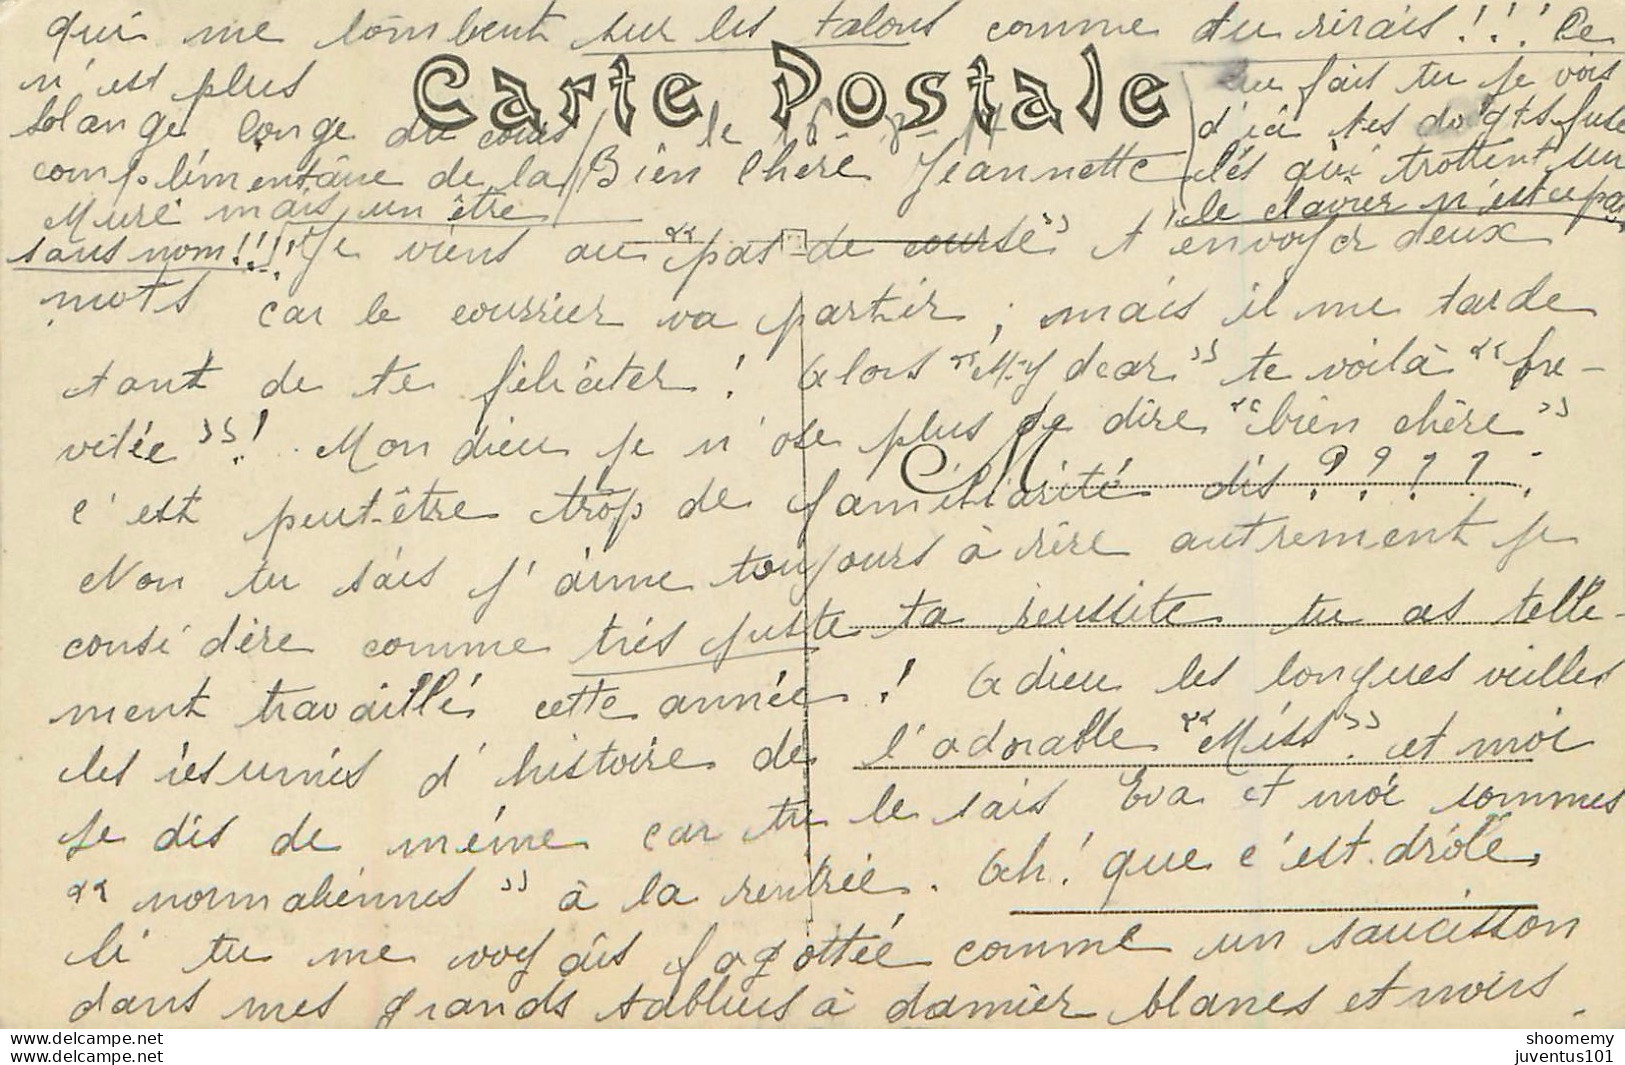 qui me tombent sur les talons comme tu rirais!!! Ce
n'est plus
Solange Conge du cours
complémentaire de la
Mure mais un être
sans nom!!!!
Carte Postale
le 16-8-
que fais tu je vois
d'ici tes doigts fuse
lés qui trottent sur
le clavier n'est ce pas
Bien Chère Jeannette
Je viens au "pas de course" t'envoyer deux
mots car le courrier va partir; mais il me tarde
tant de te féliciter! Alors "My dear" te voilà "bre-
vetée"! Mon dieu je n'ose plus te dire "bien chère"
c'est peut-être trop de familiarité dis ????
CM
Non tu sais j'aime toujours à rire autrement je
considère comme très juste ta réussite tu as telle-
ment travaillé cette année! Adieu les longues veilles
les résumés d'histoire de l'adorable "Miss" et moi
je dis de même car tu le sais Eva et moi sommes
"normaliennes" à la rentrée. Ah! que c'est drôle
Si tu me voyais fagottée comme un saucisson
dans mes grands tabliers à damier blancs et noirs.
www.delcampe.net
www.delcampe.net
shoomemy
juventus101